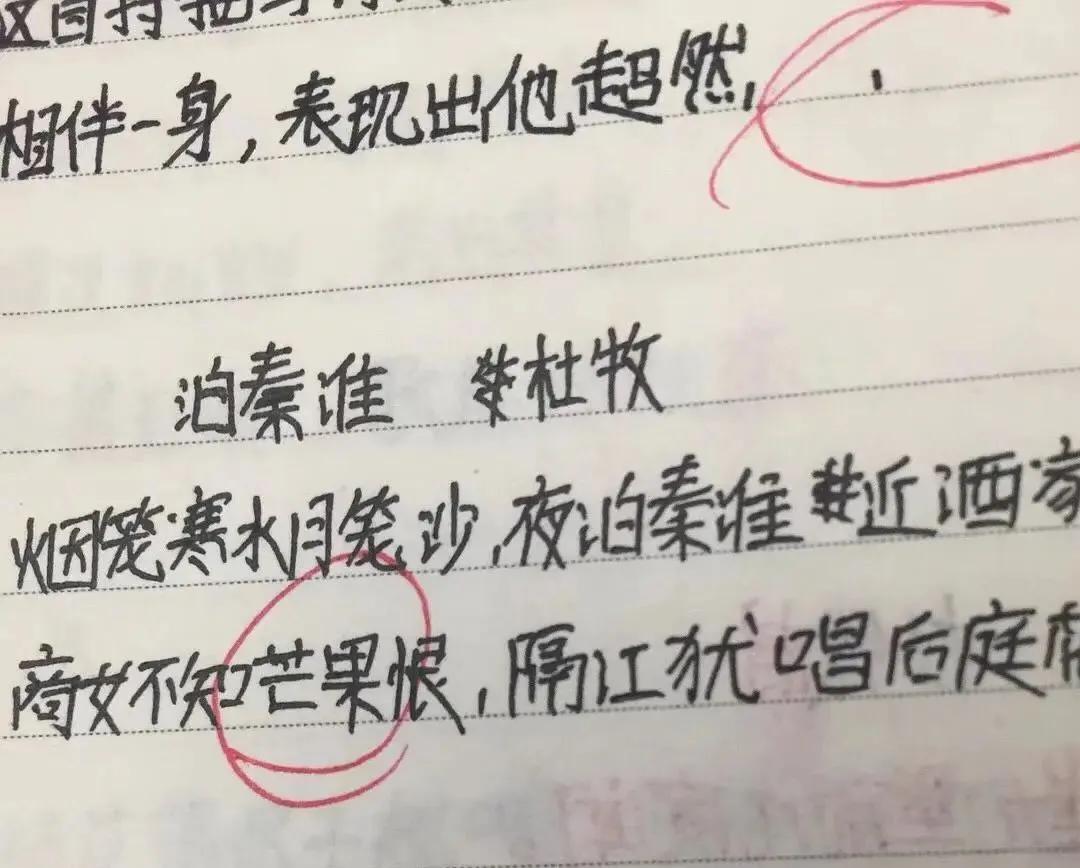 这首诗把
相伴一身，表现出他超然，
泊秦淮 杜牧
烟笼寒水月笼沙，夜泊秦淮近酒家
商女不知芒果恨，隔江犹唱后庭